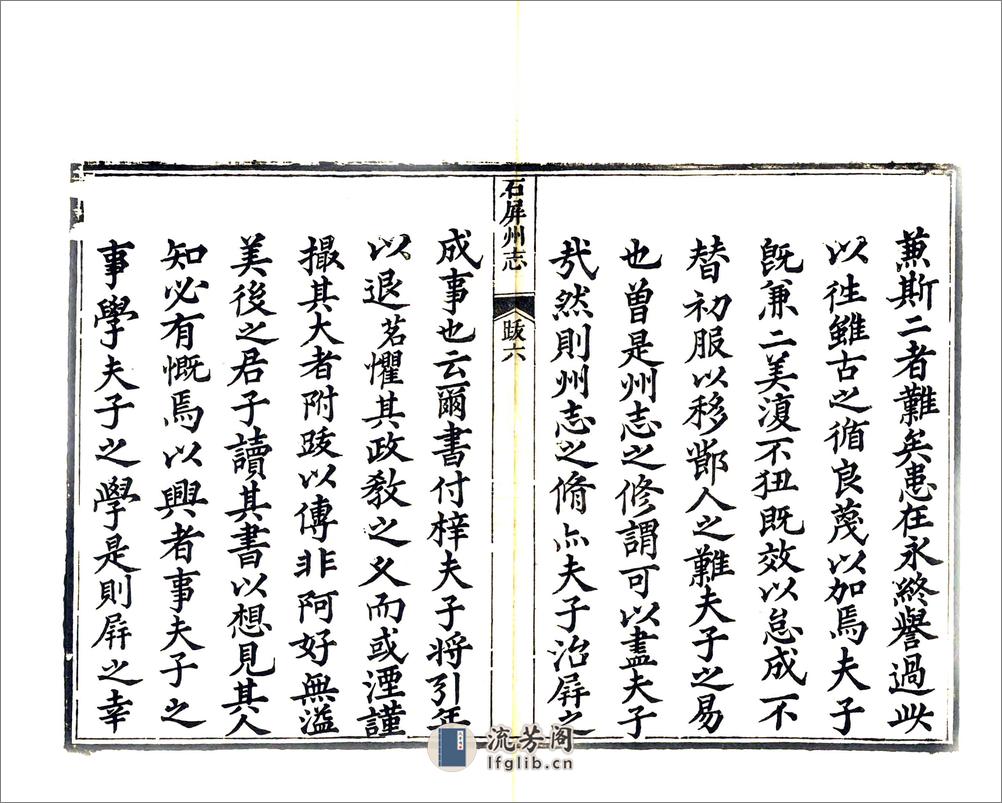 蒹斯二者難矣患在永終譽過此
以徃雖古之循良蔑以加焉夫子
旣兼二美復不狃旣效以怠成不
替初服以移鄙人之難夫子之易
也曾是州志之修謂可以盡夫子
哉然則州志之脩亦夫子治屛之
石屏州志
跋六
成事也云爾書付梓夫子將引年
以退茗懼其政教之久而或湮謹
撮其大者附跋以傳非阿好無溢
美後之君子讀其書以想見其人
知必有慨焉以興者事夫子之
事學夫子之學是則屛之幸
流芳阁
lfglib.cn